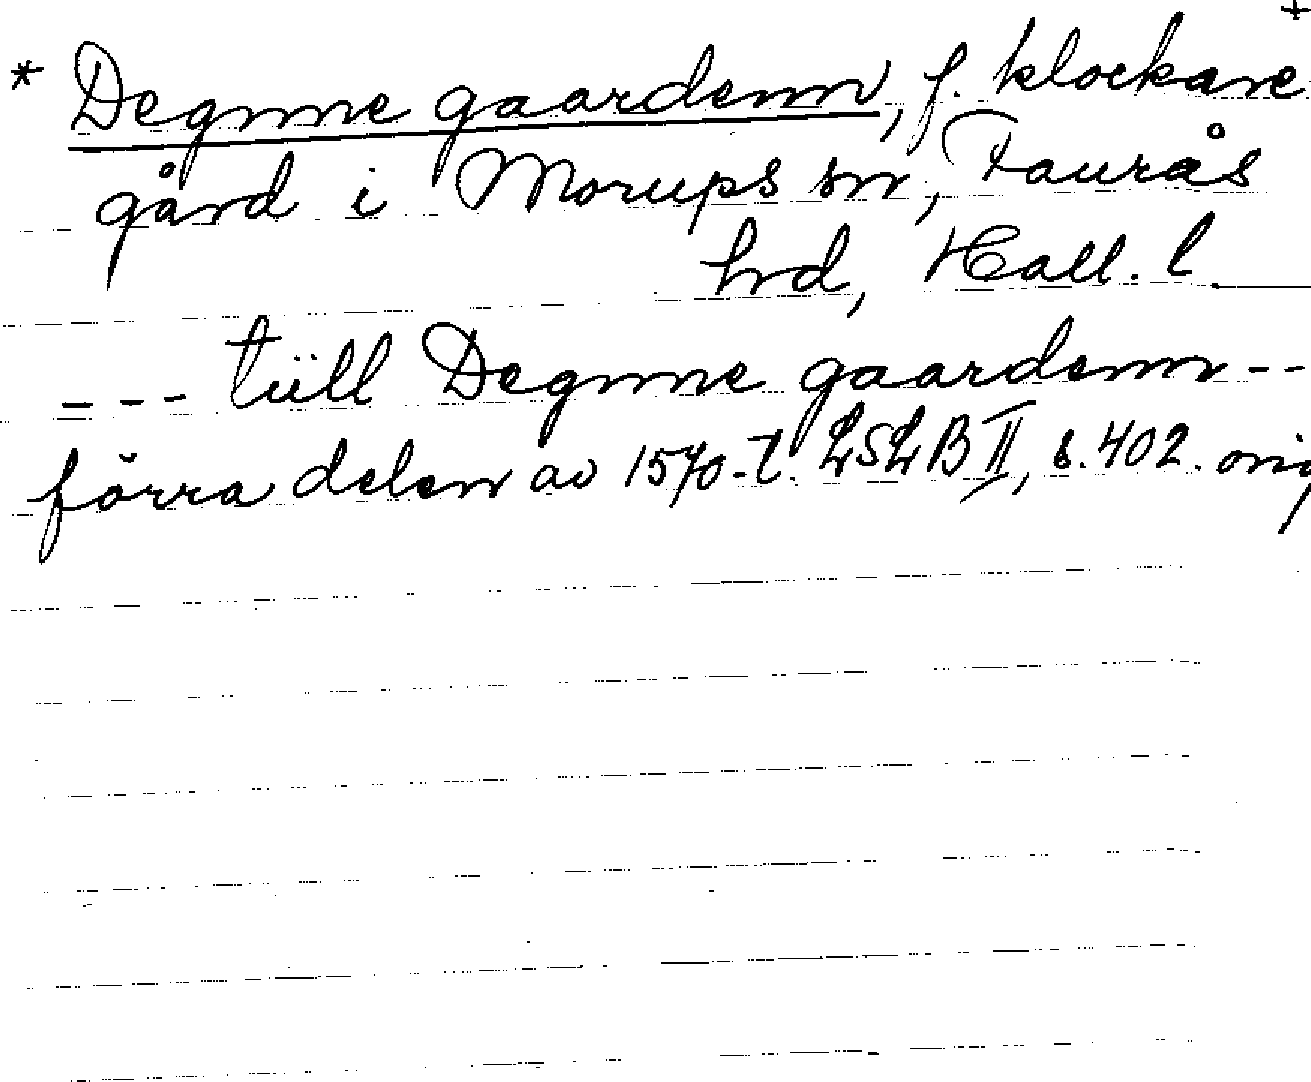 +
* Degnne gaardenn, f. klockare
gård i Morups sn, Faurås
hrd, Hall. l
--- tüll Degnne gaardenn --
förra delen av 1570-t. LSLB II, s. 402. orig